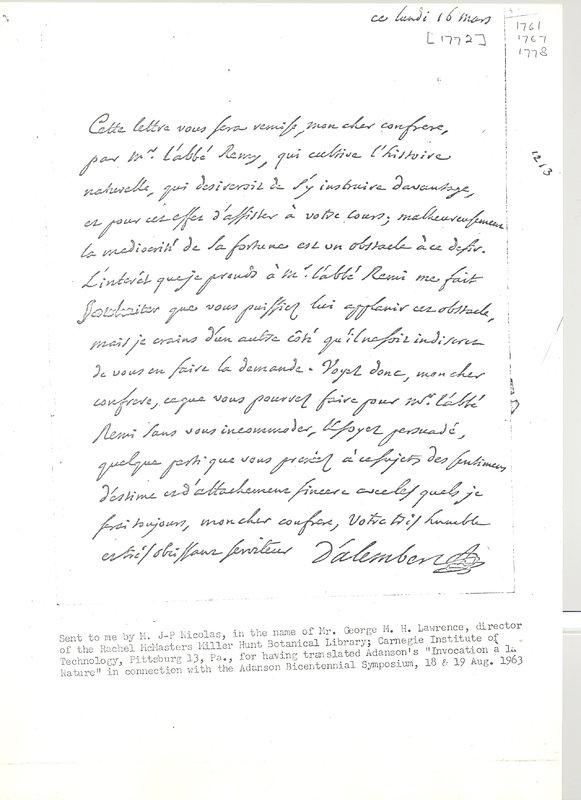 ce lundi 16 mars
[1772]
1761
1767
1778
1213
Cette lettre vous sera remise, mon cher confrere,
par Mr. l'abbé Remy, qui cultive l'histoire
naturelle, qui desireroit de s'y instruire davantage,
et pour cet effet d'assister à votre cours; malheureusement
la mediocrité de sa fortune est un obstacle à ce desir.
L'interêt que je prends à Mr. l'abbé Remi me fait
souhaiter que vous puissiez lui applanir cet obstacle,
mais je crains d'un autre côté qu'il ne soit indiscret
de vous en faire la demande. Voyez donc, mon cher
confrere, ce que vous pourrez faire pour Mr. l'abbé
Remi sans vous incommoder, & soyez persuadé,
quelque parti que vous preniez à ce sujet, des sentimens
d'estime et d'attachement sincere avec lesquels je
serai toujours, mon cher confrere, votre très humble
et très obeissant serviteur D'alembert
Sent to me by M. J-P Nicolas, in the name of Mr. George M. H. Lawrence, director
of the Rachel McMasters Miller Hunt Botanical Library; Carnegie Institute of
Technology, Pittsburg 13, Pa., for having translated Adanson's "Invocation à la
Nature" in connection with the Adanson Bicentennial Symposium, 18 & 19 Aug. 1963